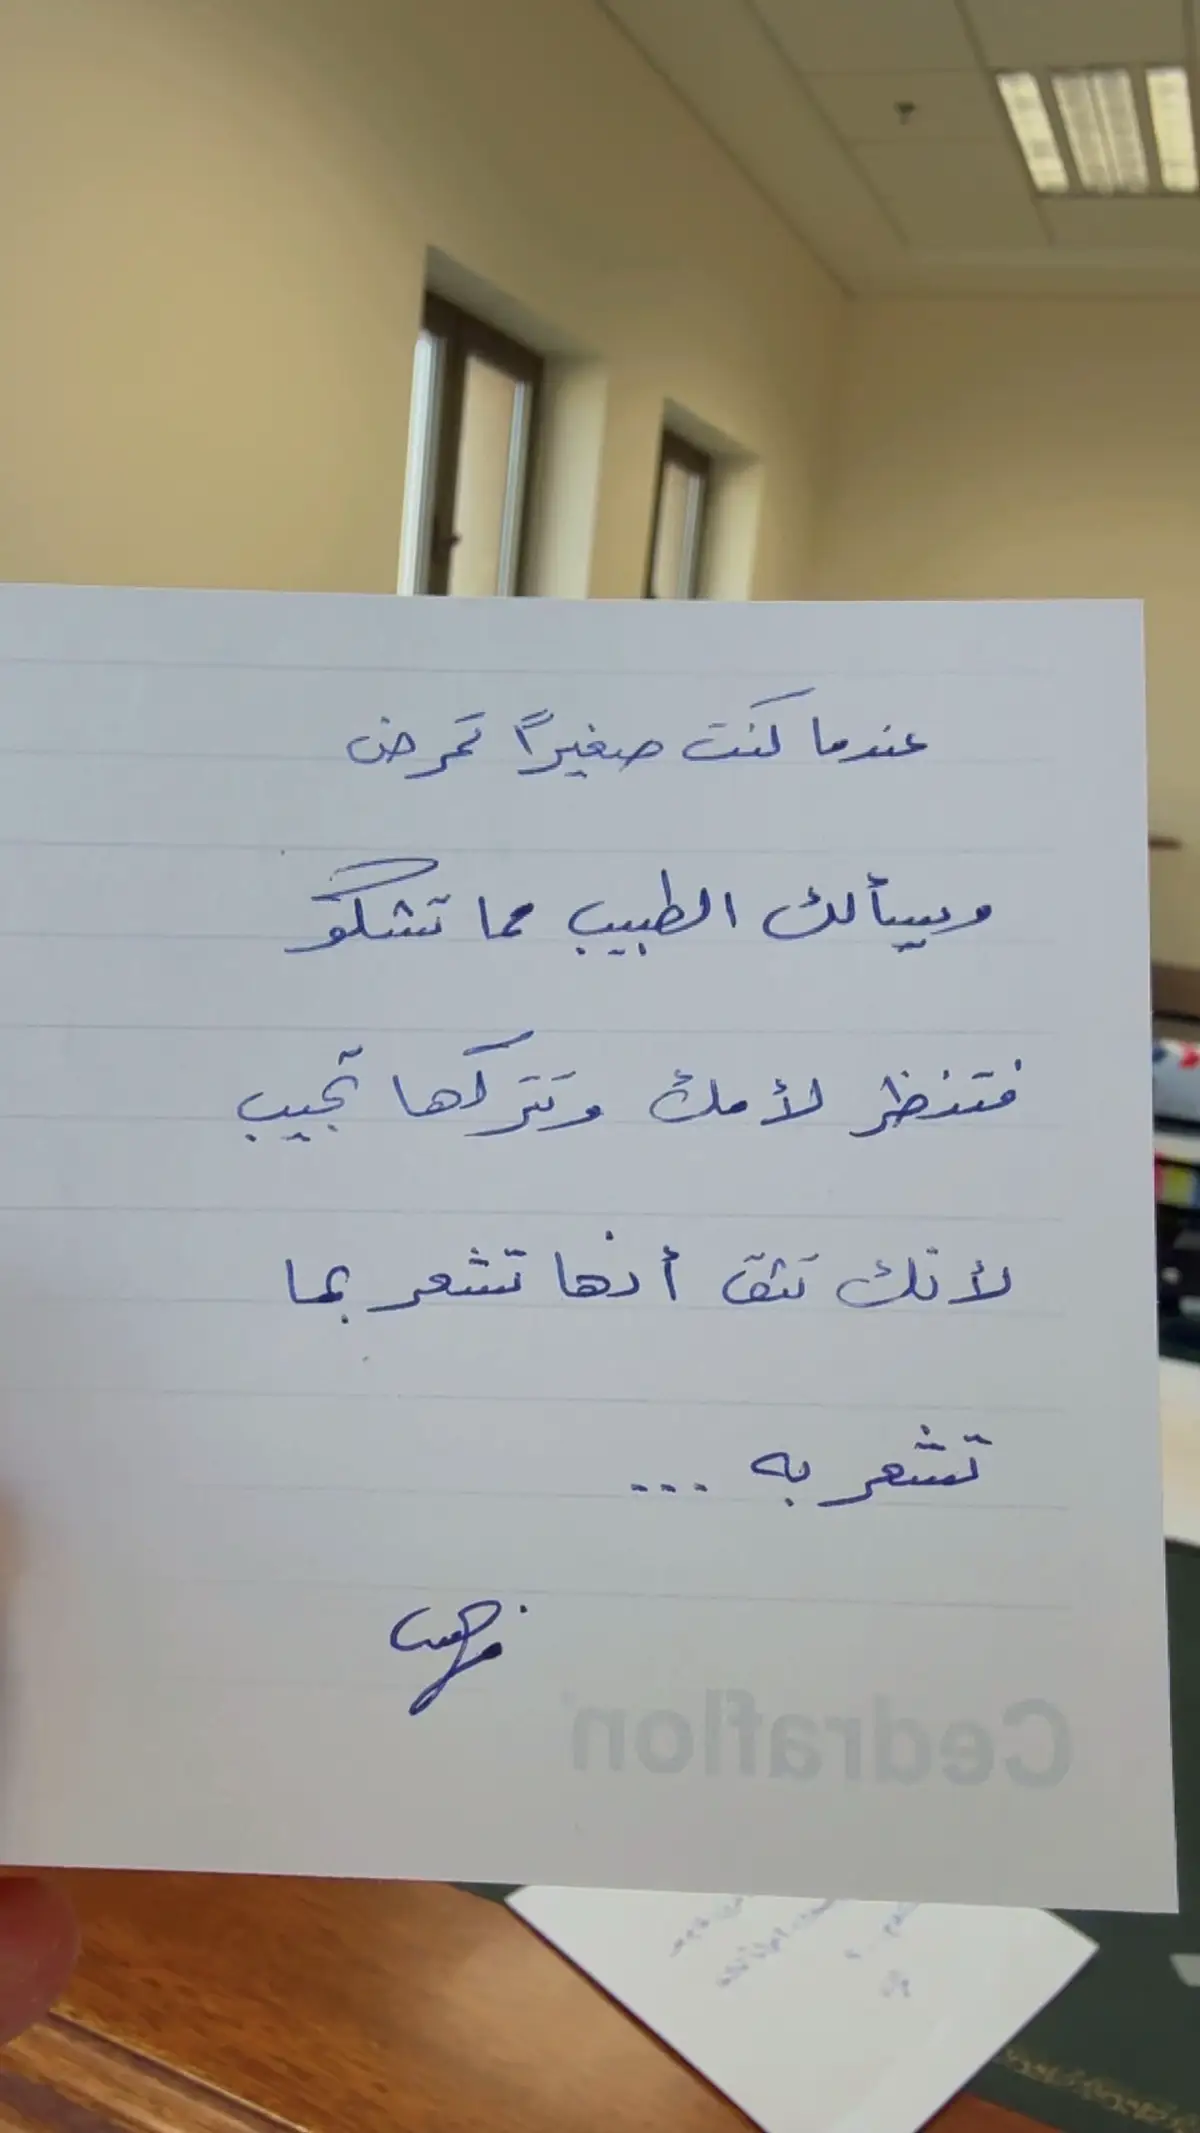 عندما كنت صغيراً تمرض
ويسألك الطبيب مما تشكو
فتنظر لأمك وتتركها تجيب
لأنك تثق أنها تشعر بما
تشعر به ...
Cedraflon